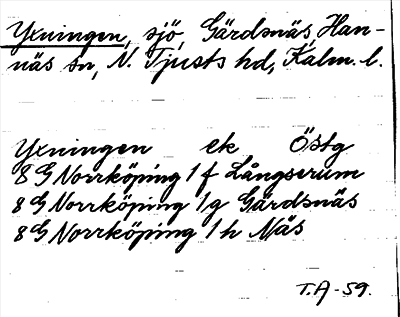 Yxningen, sjö, Gärdsnäs, Han-
näs sn, N. Tjusts hd, Kalm. l.
Yxningen ek Östg
8 G Norrköping 1 f Långserum
8 G Norrköping 1 g Gärdsnäs
8 G Norrköping 1 h Näs
T.A-59.